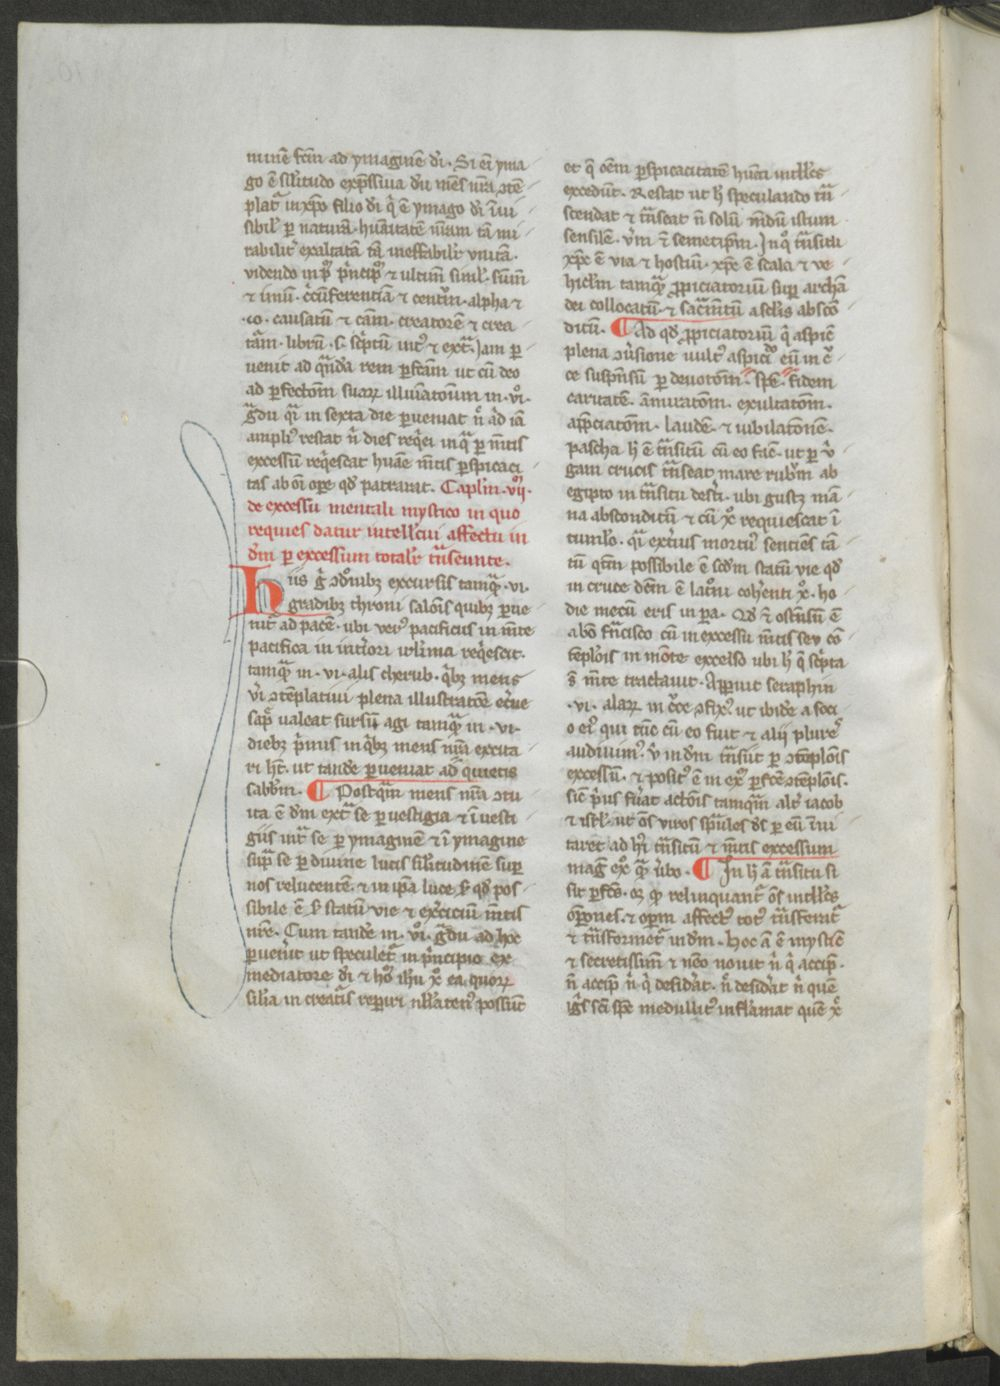 minē fcm̄ ad ymaginē di̅. Si ei̅ yma
go ē sil̅itudo exp̅ssiua dū mēs nr̅a ↄtē
plat᷑ in xp̅o filio di̅ q̅ ē ymago di̅ īui
sibil᷑ ꝑ naturā. hu̅anitatē nr̅am tā mi
rabilit᷑ exaltatā tā ineffabil᷑ vnitā.
videndo in pͦ p̅ncipͫ ⁊ ultim̅ simul᷑. su̅m̅
⁊ imū. c̅cūferenciā ⁊ centr̅. alpha ⁊
.ω. causatū ⁊ cām. creatorē ⁊ crea
tām. librū .s. sc̅ptū int᷑ ⁊ ext᷑. Iam ꝑ
uenit ad q̅ndā rem ꝑfcām ut cū deo
ad ꝑfectōm suaꝝ illui̅atoūm in .viͦ.
g̅du q̅i in sexta die ꝑueniat n̅ a̅d iā
ampli᷒ restat n̅ dies req̅ei in q̅ ꝑ mētis
excessum req̅escat hu̅ane mētis ꝑspicaci
tas ab oi̅ oꝑe qd̅ patrarat. Cap̅lm .vij.
de excessu mentali mystico in quo
requies datur intell̅cui affectu in
dm̅ ꝑ excessum total᷑r tn̅seunte.
Hiis g̅ ↄdōnibꝫ excursis tamq̅ .vi.
gradibꝫ throni salōis quibꝫ ꝑue
nit᷑ ad pacē. ubi ver᷒ pacificus in mēte
pacifica in int̅iori irl̅ima req̅escit.
tamq̅ in .vi. alis cherub. q̅bꝫ mens
v̅i ↄtēplatiui plena illustratōe et̅ne
sap̅e ualeat sursū agi tamq̅ in .vi.
diebꝫ p̅mis in q̅bꝫ mens nr̅a excita
ri ht̅. ut tande ꝑueniat ad quietis
sabbm̅. ¶ Postq̅m mens nr̅a ↄtu
ita ē dm̅ ext᷑ se ꝑ vestigia ⁊ ī vesti
giis int᷑ se ꝑ ymaginē ⁊ ī ymagine
sup᷑ se ꝑ diuine lucis sil̅itudinē suꝑ
nos relucentē. ⁊ in ip̅a luce s̅ qd̅ pos
sibile ē s̅ statū vie ⁊ exc̅iciū mētis
nr̅e. Cum tande in .viͦ. g̅du ad hoc
ꝑuen̅it ut speculet᷑ in p̅ncipio ex
mediatore di̅ ⁊ hoͦ ih̅u xͦ ea quoꝝ
sil̅ia in creat᷑is reꝑiri nl̅laten᷒ possūt
et q̅ oēm ꝑspicacitatē hu̅ai intell̅cs
excedūt. Restat ut h̅ speculando tn̅
scendat ⁊ tn̅seat n̅ solū mūdū istum
sensilē. v̅m ⁊ semetip̅m. In qͦ tn̅situ
xp̅c ē via ⁊ hostiū. xp̅c ē scala ⁊ ve
hicl̅m tamq̅ ꝓpiciatoriū suꝑ archā
dei collocatū. ⁊ sac̅mentū a scl̅is abscō
ditū. ¶ Ad qd̅ ꝓpiciatoriū q̅ aspicē
plena ↄūsione vult᷒ aspicīdͦ eū in c̅
ce suspēsū ꝑ deuotōm. spē. fidem
caritatē. āmiratōm. exultatōm.
app̅ciatōm. laudē. ⁊ iubilatōnē.
pascha h̅ ē tn̅situ cū eo facē. ut ꝑ v̅
gam crucis tn̅seat mare rubr̅m ab
egipto in tn̅situ destī. ubi gustꝫ mā
na absconditū ⁊ cū xͦ requiescat ī
tumlo̅. q̅i extius mortu᷒ sentiēs tā
tū qtm̅ possibile ē scd̅m statū vie qd̅
in cruce dcm̅ ē latōi coh̅enti xͦ. ho
die mecū eris in ꝑa. Qd̅ ⁊ ostēsū ē
a bō frācisco cū in excessu mētis ſeu cō
tēplōis in mōte excelso ubi h̅ q̅ sc̅pta
s̅ mēte tractauit. Aꝑuit seraphin
.vi. alaꝝ in c̅ce ↄfix᷒ ut ibide a soci
o ei᷒ qui tūc cū eo fuit ⁊ alij plure᷒
audiuim᷒. v̅ in dm̅ tn̅siit ꝑ ↄtēplōis
excessū. ⁊ posit᷒ ē in exͦ ꝑfcē ↄtēplōis.
sic̅ p̅us fu̅at actōis tamq̅m alt᷑ iacob
⁊ isrl̅. ut oēs viros sp̅uales ds̅ ꝑ eū īui
taret ad hi̅ tn̅situ ⁊ mētis excessum
mag̅ exͦ q̅ v̅bo. ¶ In h̅ a̅ tn̅situ si
sit ꝑfc̅s. oꝫ ꝙ relinquant᷑ oēs intell̅cs
oꝑōnes. ⁊ oꝑm affect᷒ tot᷒ tn̅sferat᷑
⁊ tn̅sformet᷑ in dm̅. Hoc a̅ ē mysticē
⁊ secretissim̅ ⁊ nēo nouit n̅ q̅ accip̅.
n̅ accip̅ n̅ q̅ desid̅at. n̅ desid̅at n̅ quē
ig̅s sc̅i sp̅c medullit᷒ inflāmat quē xͦ